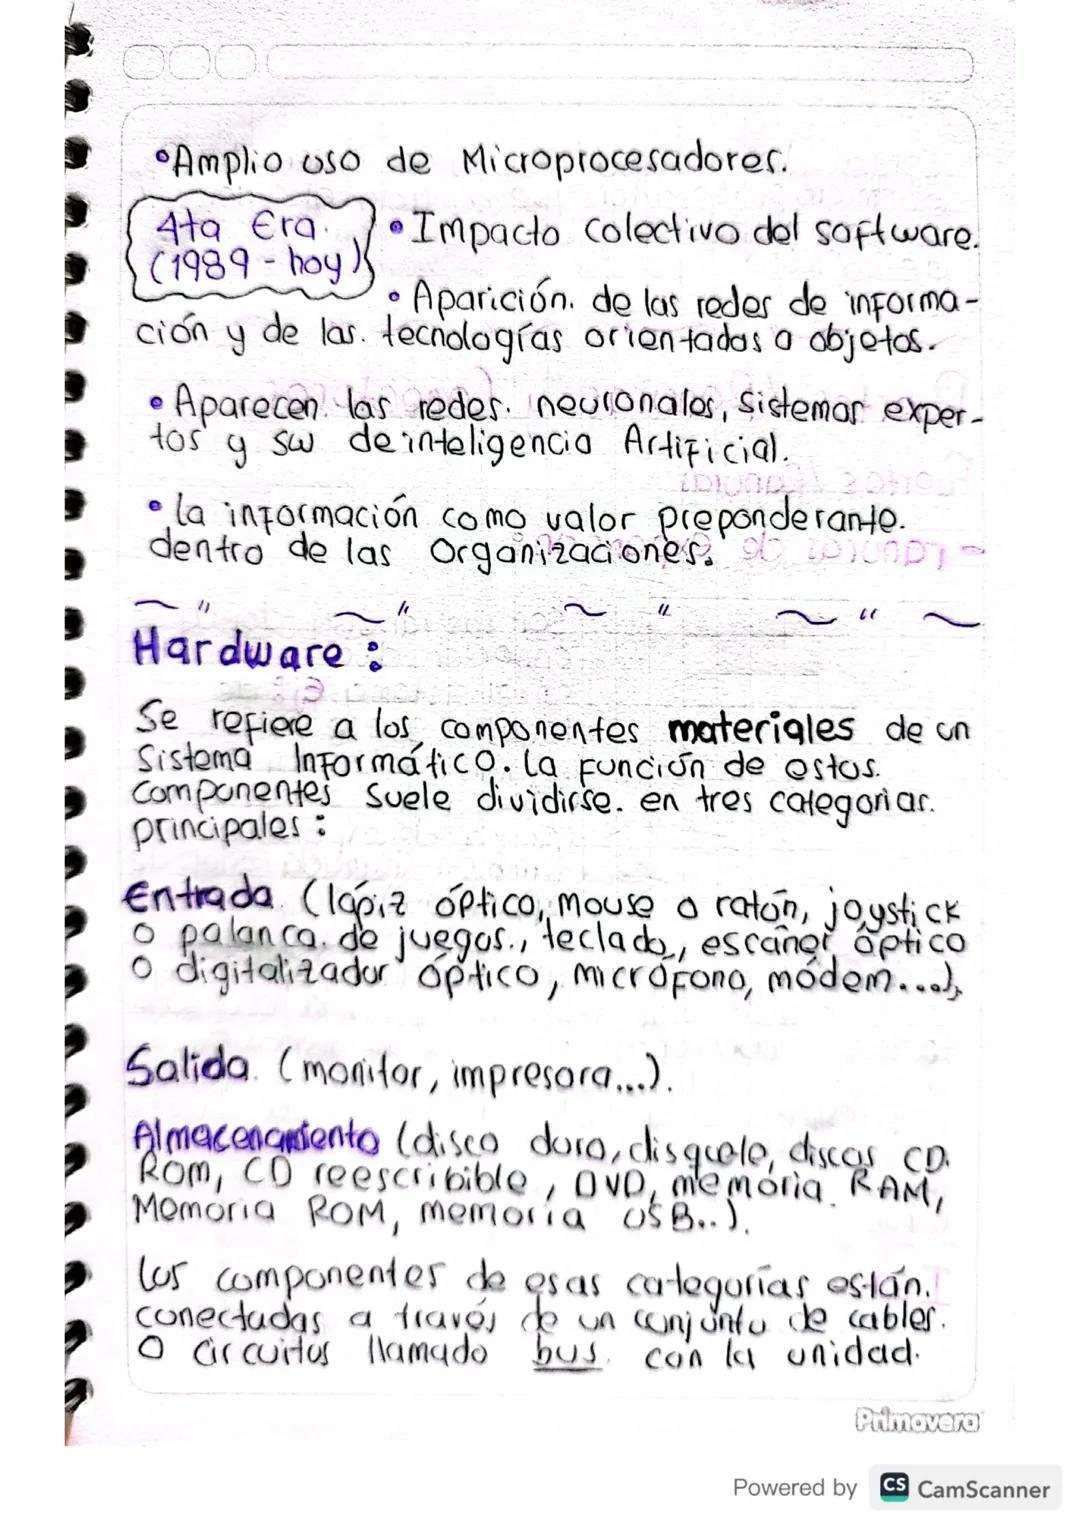 •Amplio uso de Microprocesadores.
4ta Era. •Impacto colectivo del software.
(1989-hoy)
•Aparición. de las redes de informa-
ción y de las. tecnologías orientadas a objetos.
•Aparecen. las redes. neuronales, sistemas exper-
tos y sw de inteligencia Artificial.
•la información como valor preponderante.
dentro de las Organizaciones.
~ " ~ " ~ " ~ " ~
Hardware:
Se refiere a los componentes materiales de un
Sistema Informático. La función de estos.
Componentes suele dividirse. en tres categorias.
principales:
Entrada. (lápiz óptico, mouse o ratón, joystick
o palanca. de juegos., teclado, escáner óptico
o digitalizador óptico, micrófono, módem...).
Salida. (monitor, impresora...).
Almacenamiento (disco duro, disquete, discos CD.
Rom, CD reescribible, DVD, memoria. RAM,
Memoria ROM, memoria USB..).
Los componentes de esas categorías están.
conectadas a través de un conjunto de cables.
O circuitos llamado bus. con la unidad.
Primavera
Powered by CS CamScanner